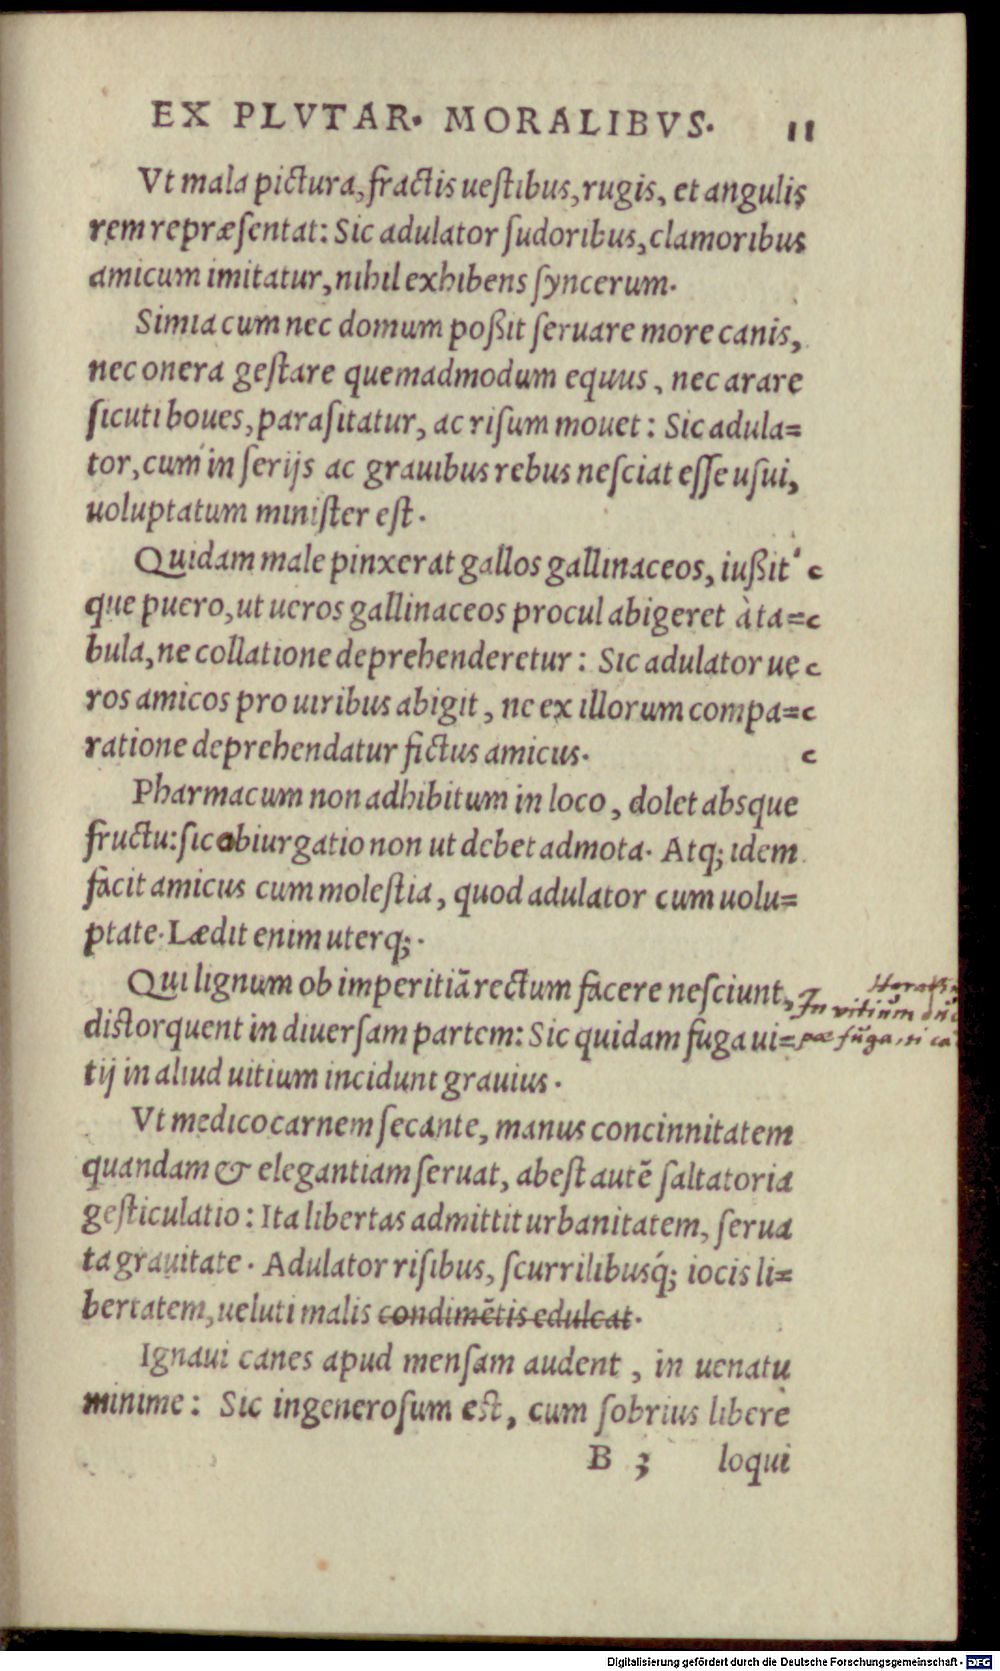 EX PLVTAR. MORALIBVS. 11
Vt mala pictura, fractis uestibus, rugis, et angulis
rem repræsentat: Sic adulator sudoribus, clamoribus
amicum imitatur, nihil exhibens syncerum.
Simia cum nec domum poßit seruare more canis,
nec onera gestare quemadmodum equus, nec arare
sicuti boues, parasitatur, ac risum mouet: Sic adula=
tor, cum in serijs ac grauibus rebus nesciat esse usui,
uoluptatum minister est.
Quidam male pinxerat gallos gallinaceos, iußit c
que puero, ut ueros gallinaceos procul abigeret à ta= c
bula, ne collatione deprehenderetur: Sic adulator ue c
ros amicos pro uiribus abigit, ne ex illorum compa= c
ratione deprehendatur fictus amicus. c
Pharmacum non adhibitum in loco, dolet absque
fructu: sic obiurgatio non ut debet admota. Atq; idem
facit amicus cum molestia, quod adulator cum uolu=
ptate. Lædit enim uterq;.
Qui lignum ob imperitiā rectum facere nesciunt,
In vitium
distorquent in diuersam partem: Sic quidam fuga ui=
pæ fuga, si ca
tij in aliud uitium incidunt grauius.
Vt medico carnem secante, manus concinnitatem
quandam & elegantiam seruat, abest autē saltatoria
gesticulatio: Ita libertas admittit urbanitatem, serua
ta grauitate. Adulator risibus, scurrilibusq́; iocis li=
bertatem, ueluti malis condimētis edulcat.
Ignaui canes apud mensam audent, in uenatu
minime: Sic ingenerosum est, cum sobrius libere
B 3 loqui
Digitalisierung gefördert durch die Deutsche Forschungsgemeinschaft - DFG